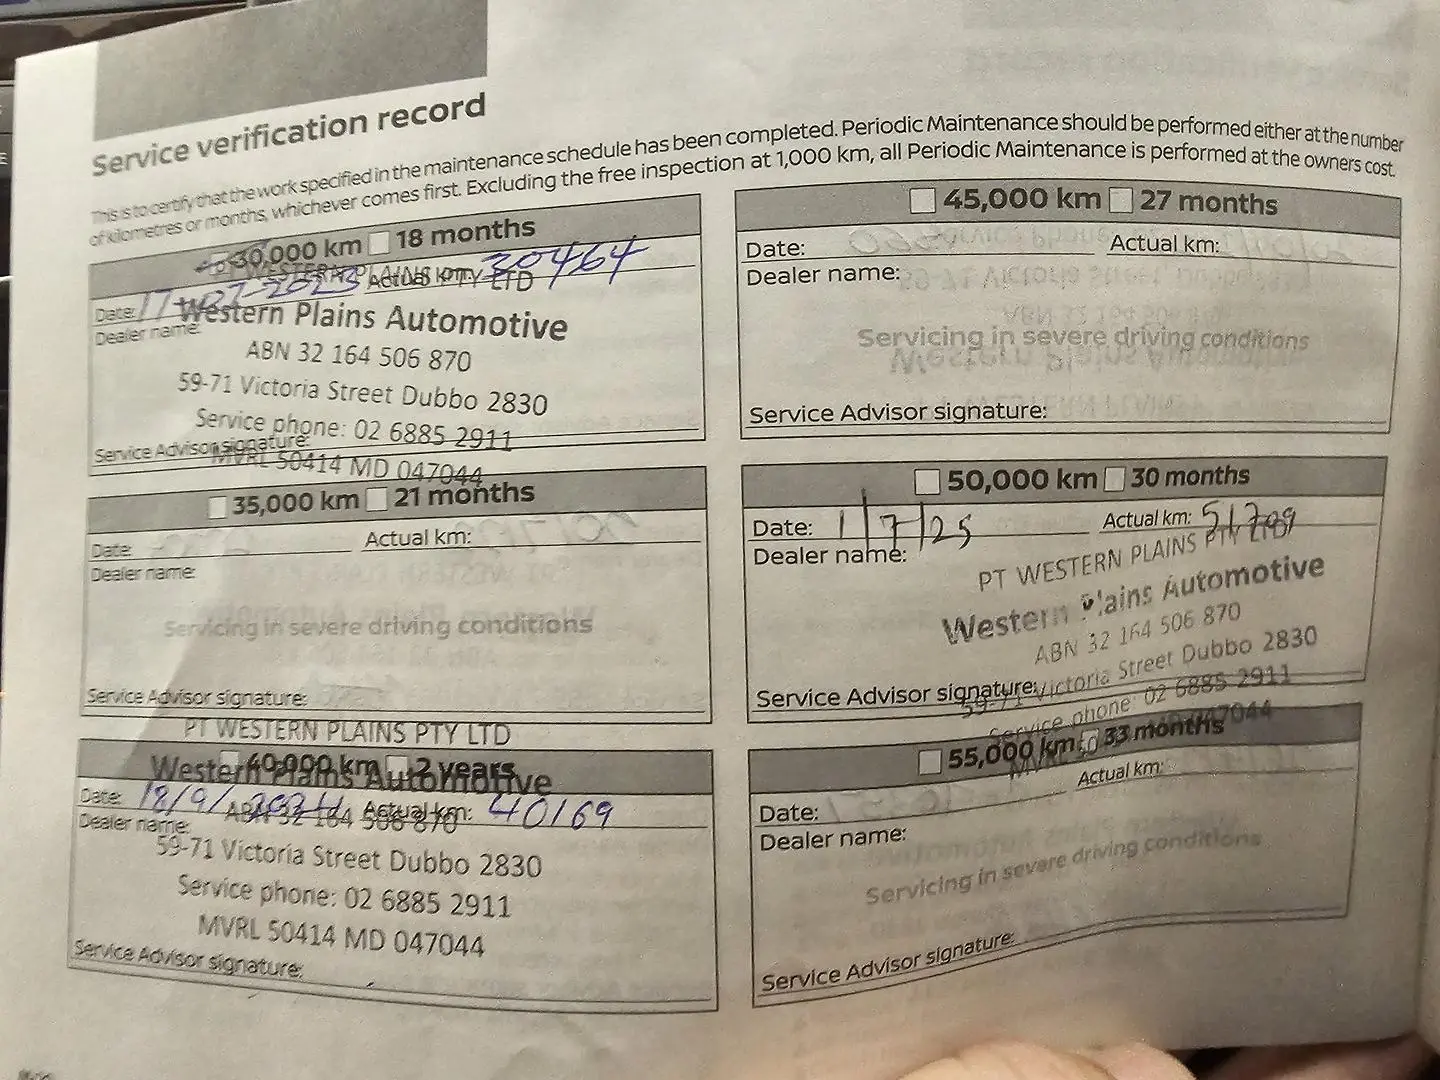 Service verification record
This is to certify that the work specified in the maintenance schedule has been completed. Periodic Maintenance should be performed either at the number
of kilometres or months, whichever comes first. Excluding the free inspection at 1,000 km, all Periodic Maintenance is performed at the owners cost.
30,000 km 18 months
PT WESTERN PLAINS PTY LTD
Date: 17-07-2023 Actual km: 30464
Dealer name:
Western Plains Automotive
ABN 32 164 506 870
59-71 Victoria Street Dubbo 2830
Service phone: 02 6885 2911
Service Advisor signature:
MVRL 50414 MD 047044
35,000 km 21 months
Date: Actual km:
Dealer name:
Servicing in severe driving conditions
Service Advisor signature:
PT WESTERN PLAINS PTY LTD
40,000 km 2 years
Western Plains Automotive
Date: 18/9/2024 Actual km: 40169
ABN 32 164 506 870
Dealer name:
59-71 Victoria Street Dubbo 2830
Service phone: 02 6885 2911
MVRL 50414 MD 047044
Service Advisor signature:
45,000 km 27 months
Date: Actual km:
Dealer name:
Servicing in severe driving conditions
Service Advisor signature:
50,000 km 30 months
Date: 1/7/25 Actual km: 51799
Dealer name:
PT WESTERN PLAINS PTY LTD
Western Plains Automotive
ABN 32 164 506 870
59-71 Victoria Street Dubbo 2830
Service Advisor signature:
Service phone: 02 6885 2911
55,000 km 33 months
Date: Actual km:
Dealer name:
Servicing in severe driving conditions
Service Advisor signature: